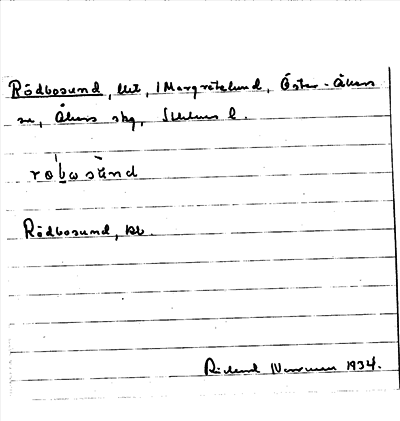 Rödbosund, lht, 1 Margretelund, Öster-Åkers
sn, Åkers skg, Sthlms l.
robosund
Rödbosund, kb.
Rickard 1934.